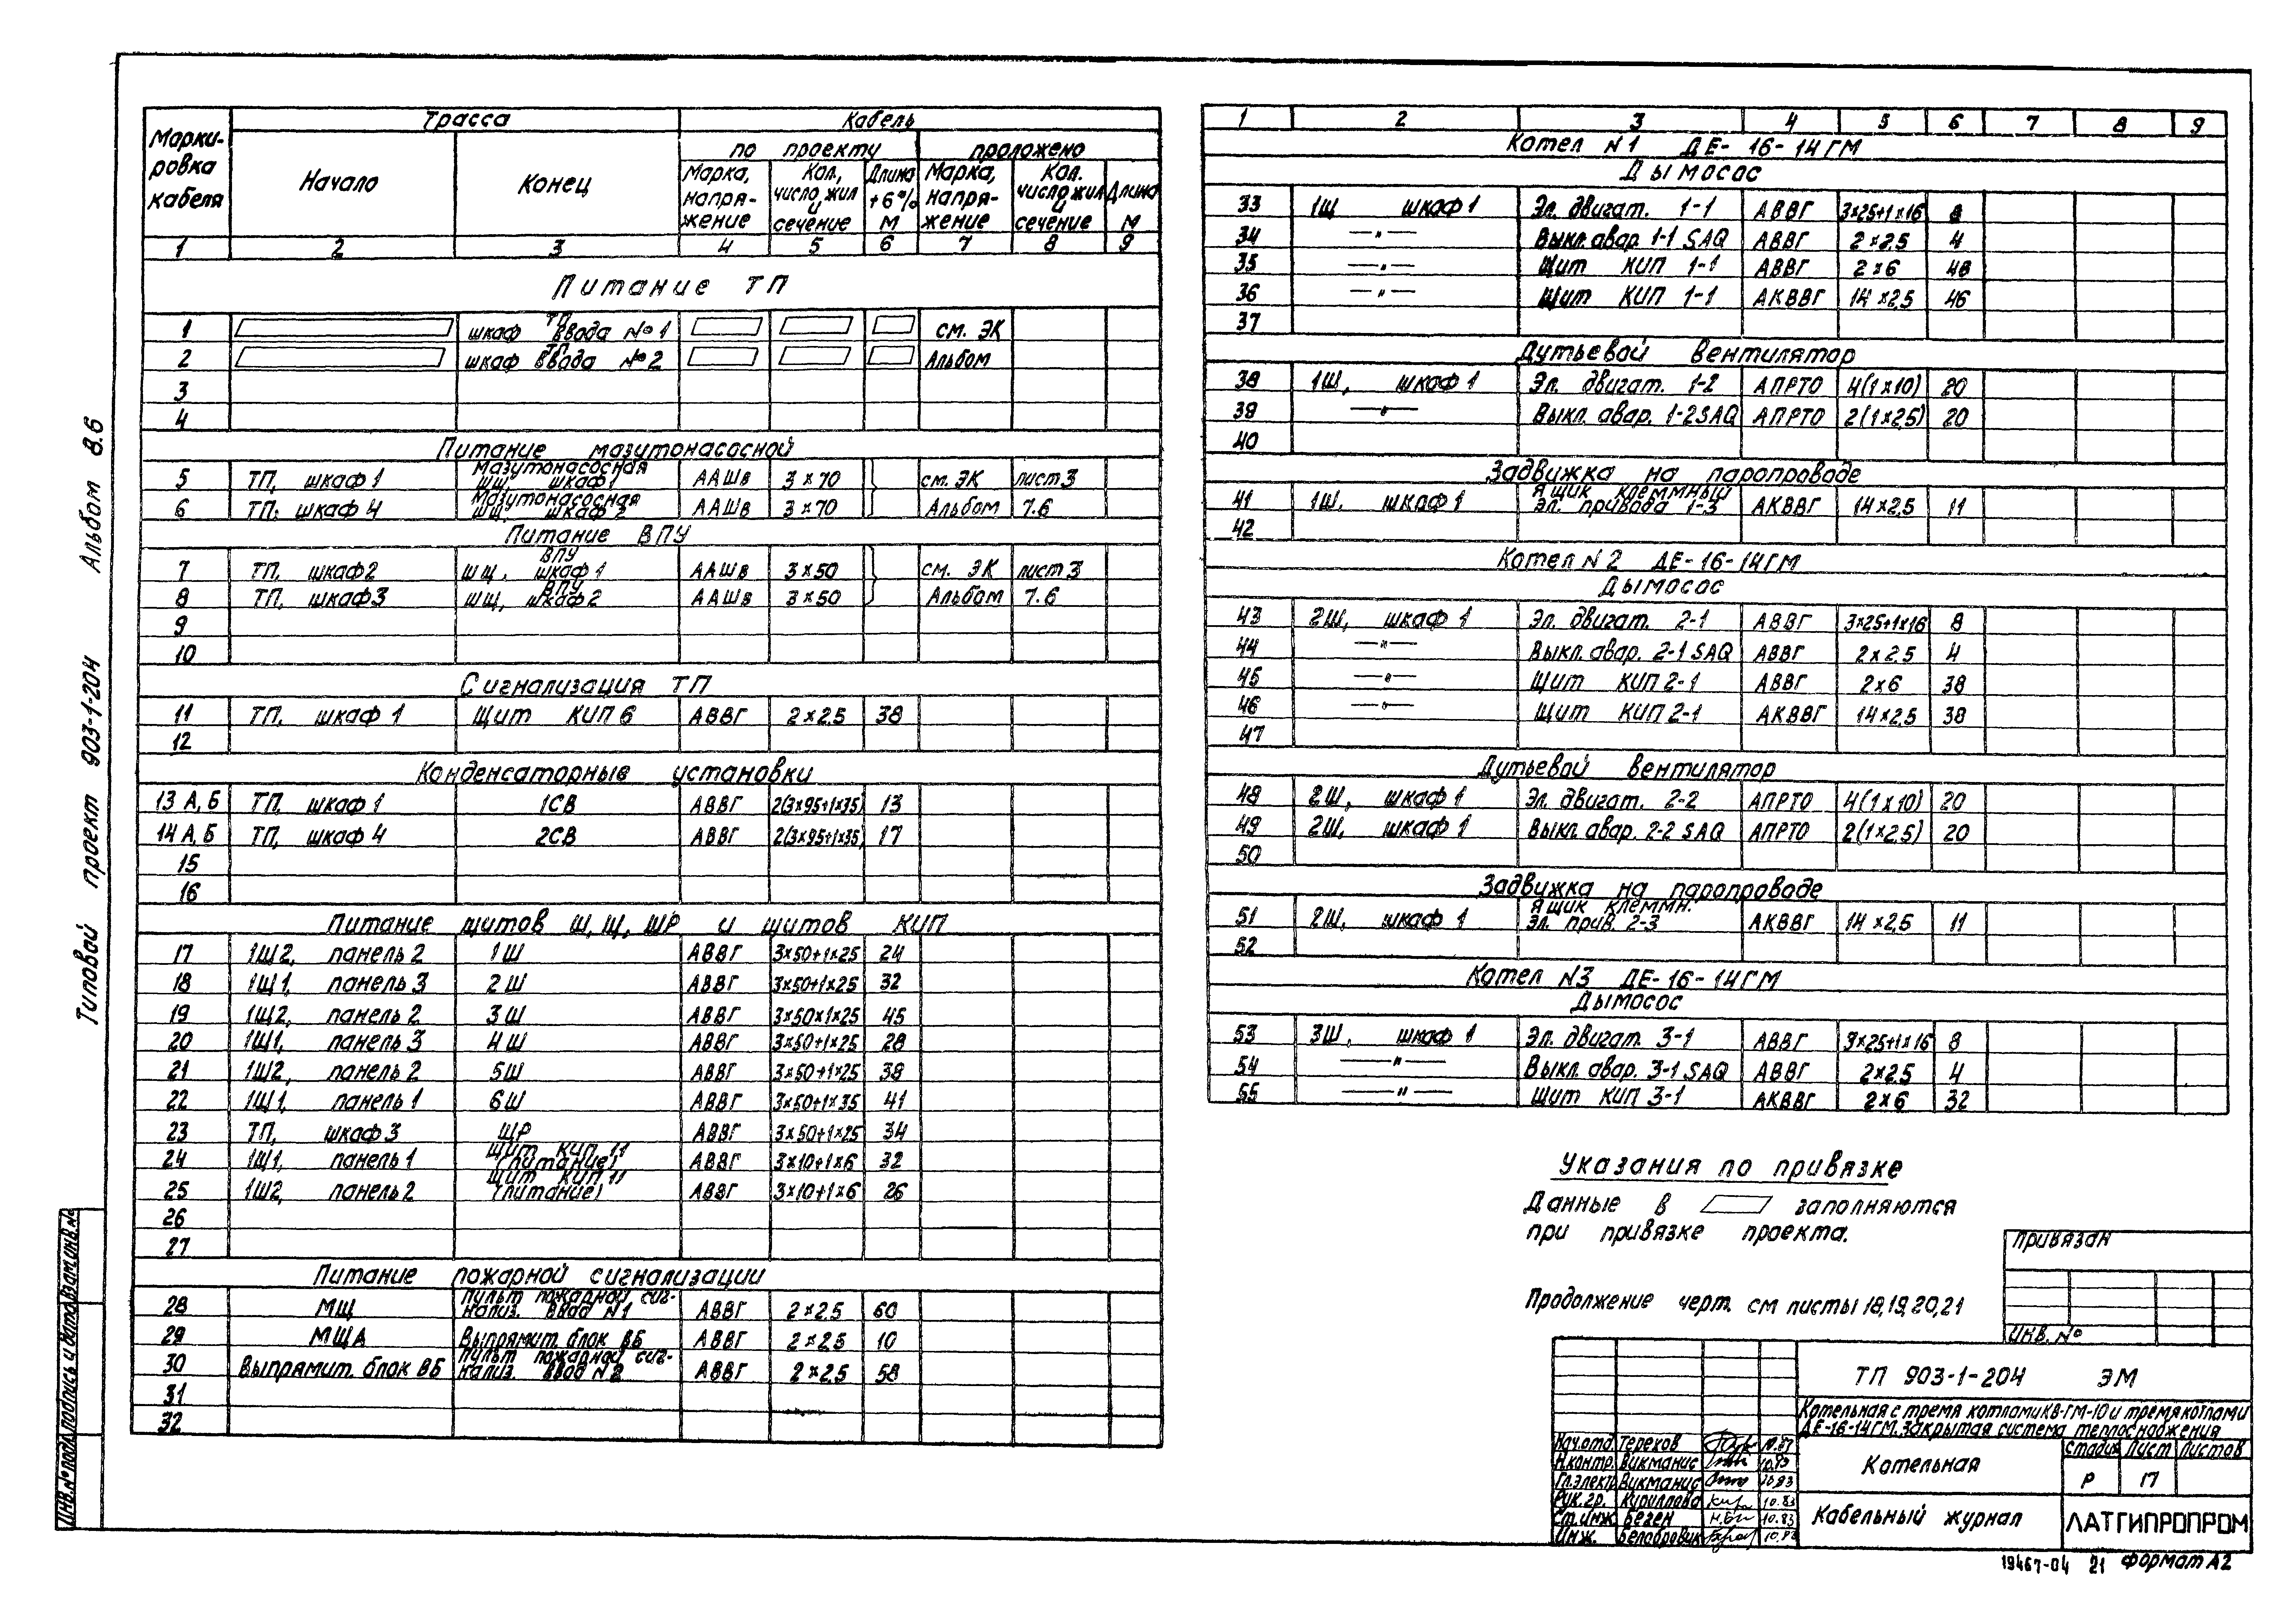 Типовой проект 903-1-204 Альбом 8.6
Марки-ровка кабеля | Трасса | Кабель
Начало | Конец | по проекту | проложено
Марка, напря-жение | Кол., число жил и сечение | Длина +6% м | Марка, напря-жение | Кол. число жил и сечение | Длина м
1 | 2 | 3 | 4 | 5 | 6 | 7 | 8 | 9
Питание ТП
1 | ТП шкаф ввода №1 | см. ЭК
2 | ТП шкаф ввода №2 | Альбом
3
4
Питание мазутонасосной
5 | ТП, шкаф 1 | Мазутонасосная ШЩ, шкаф 1 | ААШв | 3×70 | см. ЭК | лист 3
6 | ТП; шкаф 4 | Мазутонасосная ШЩ, шкаф 2 | ААШв | 3×70 | Альбом | 7.6
Питание ВПУ
7 | ТП, шкаф 2 | ВПУ ШЩ, шкаф 1 | ААШв | 3×50 | см. ЭК | лист 3
8 | ТП, шкаф 3 | ВПУ ШЩ, шкаф 2 | ААШв | 3×50 | Альбом | 7.6
9
10
Сигнализация ТП
11 | ТП, шкаф 1 | Щит КИП 6 | АВВГ | 2×2.5 | 38
12
Конденсаторные установки
13 А, Б | ТП, шкаф 1 | 1СВ | АВВГ | 2(3×95+1×35) | 13
14 А, Б | ТП, шкаф 4 | 2СВ | АВВГ | 2(3×95+1×35) | 17
15
16
Питание щитов Ш, Щ, ШР и щитов КИП
17 | 1Щ2, панель 2 | 1Ш | АВВГ | 3×50+1×25 | 24
18 | 1Щ1, панель 3 | 2Ш | АВВГ | 3×50+1×25 | 32
19 | 1Щ2, панель 2 | 3Ш | АВВГ | 3×50×1×25 | 45
20 | 1Щ1, панель 3 | 4Ш | АВВГ | 3×50+1×25 | 28
21 | 1Щ2, панель 2 | 5Ш | АВВГ | 3×50+1×25 | 38
22 | 1Щ1, панель 1 | 6Ш | АВВГ | 3×50+1×35 | 41
23 | ТП, шкаф 3 | ШР | АВВГ | 3×50+1×25 | 34
24 | 1Щ1, панель 1 | Щит КИП 11 (питание) | АВВГ | 3×10+1×6 | 32
25 | 1Щ2, панель 2 | Щит КИП 11 (питание) | АВВГ | 3×10+1×6 | 26
26
27
Питание пожарной сигнализации
28 | МЩ | Пульт пожарной сиг-нализ. ввод №1 | АВВГ | 2×2.5 | 60
29 | МЩА | Выпрямит. блок ВБ | АВВГ | 2×2.5 | 10
30 | Выпрямит. блок ВБ | Пульт пожарной сиг-нализ. ввод №2 | АВВГ | 2×2.5 | 58
31
32
1 | 2 | 3 | 4 | 5 | 6 | 7 | 8 | 9
Котел №1 ДЕ-16-14ГМ
Дымосос
33 | 1Щ шкаф 1 | Эл. двигат. 1-1 | АВВГ | 3×25+1×16 | 8
34 | —"— | Выкл. авар. 1-1 SAQ | АВВГ | 2×2.5 | 4
35 | —"— | Щит КИП 1-1 | АВВГ | 2×6 | 46
36 | —"— | Щит КИП 1-1 | АКВВГ | 14×2.5 | 46
37
Дутьевой вентилятор
38 | 1Ш, шкаф 1 | Эл. двигат. 1-2 | АПРТО | 4(1×10) | 20
39 | —"— | Выкл. авар. 1-2 SAQ | АПРТО | 2(1×2.5) | 20
40
Задвижка на паропроводе
41 | 1Ш, шкаф 1 | Ящик клеммный эл. привода 1-3 | АКВВГ | 14×2.5 | 11
42
Котел №2 ДЕ-16-14ГМ
Дымосос
43 | 2Ш, шкаф 1 | Эл. двигат. 2-1 | АВВГ | 3×25+1×16 | 8
44 | —"— | Выкл. авар. 2-1 SAQ | АВВГ | 2×2.5 | 4
45 | —"— | Щит КИП 2-1 | АВВГ | 2×6 | 38
46 | —"— | Щит КИП 2-1 | АКВВГ | 14×2.5 | 38
47
Дутьевой вентилятор
48 | 2Ш, шкаф 1 | Эл. двигат. 2-2 | АПРТО | 4(1×10) | 20
49 | 2Ш, шкаф 1 | Выкл. авар. 2-2 SAQ | АПРТО | 2(1×2.5) | 20
50
Задвижка на паропроводе
51 | 2Ш, шкаф 1 | Ящик клеммн. эл. прив. 2-3 | АКВВГ | 14×2.5 | 11
52
Котел №3 ДЕ-16-14ГМ
Дымосос
53 | 3Ш, шкаф 1 | Эл. двигат. 3-1 | АВВГ | 3×25+1×16 | 8
54 | —"— | Выкл. авар. 3-1 SAQ | АВВГ | 2×2.5 | 4
55 | —"— | Щит КИП 3-1 | АКВВГ | 2×6 | 32
Указания по привязке
Данные в заполняются
при привязке проекта.
Продолжение черт. см листы 18,19,20,21
Привязан
Инв. №
ТП 903-1-204 ЭМ
Котельная с тремя котлами КВ-ГМ-10 и тремя котлами
ДЕ-16-14ГМ. Закрытая система теплоснабжения
Нач.отд. Терехов 10.83
Н.контр. Викманис 10.83
Гл.электр Викманис 10.83
Рук.гр. Кириллова 10.83
Ст.инж. Беген 10.83
Инж. Белобровик 10.83
Котельная
Стадия | Лист | Листов
Р | 17
Кабельный журнал
ЛАТГИПРОПРОМ
19467-04 21 Формат А2
Инв.№ подл. Подпись и дата Взам.инв.№